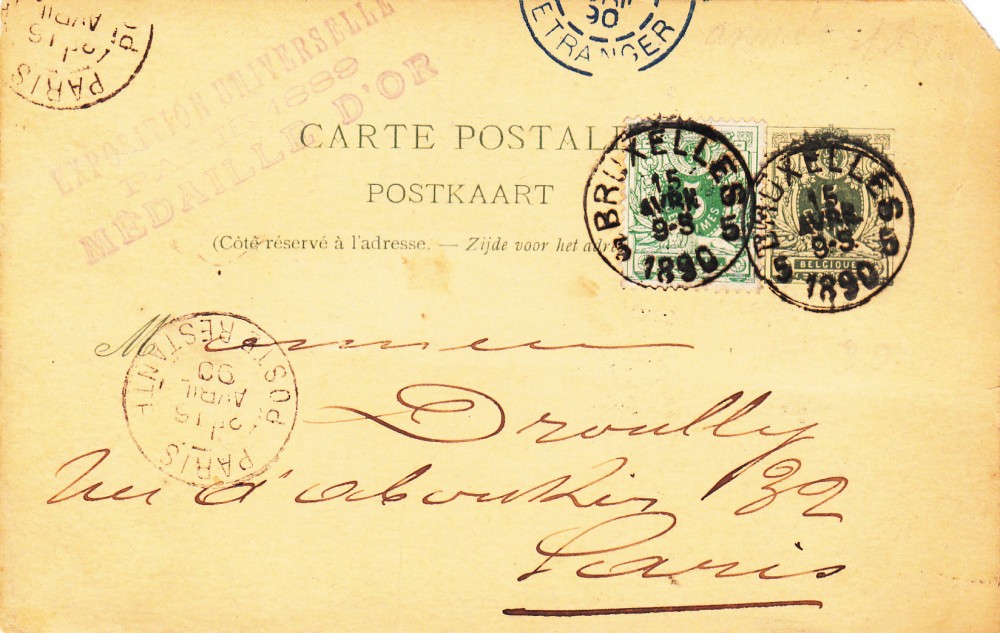 PARIS
15
AVRIL
90
ETRANGER
EXPOSITION UNIVERSELLE
1889
PARIS
MÉDAILLE D'OR
CARTE POSTALE
POSTKAART
(Côté réservé à l'adresse. — Zijde voor het adres
5
BRUXELLES
15
AVRIL
9-S
5 1890 5
BRUXELLES
15
AVRIL
9-S
5 1890 5
BELGIQUE
Monsieur
Droully
rue d'aboukir 132
Paris
PARIS
15
AVRIL
90
POSTE RESTANTE